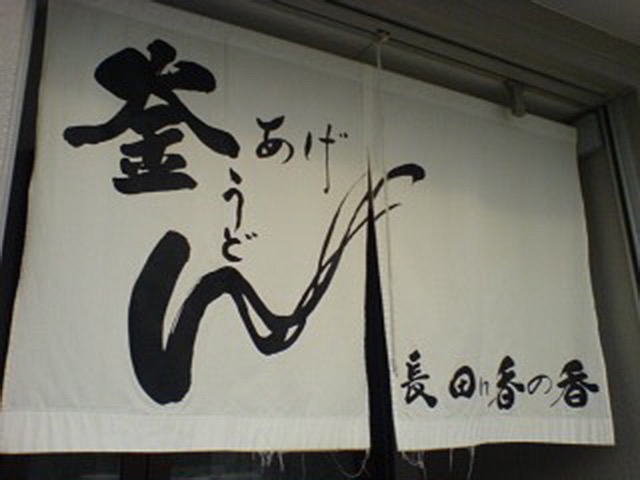 釜あげうどん
長田in香の香